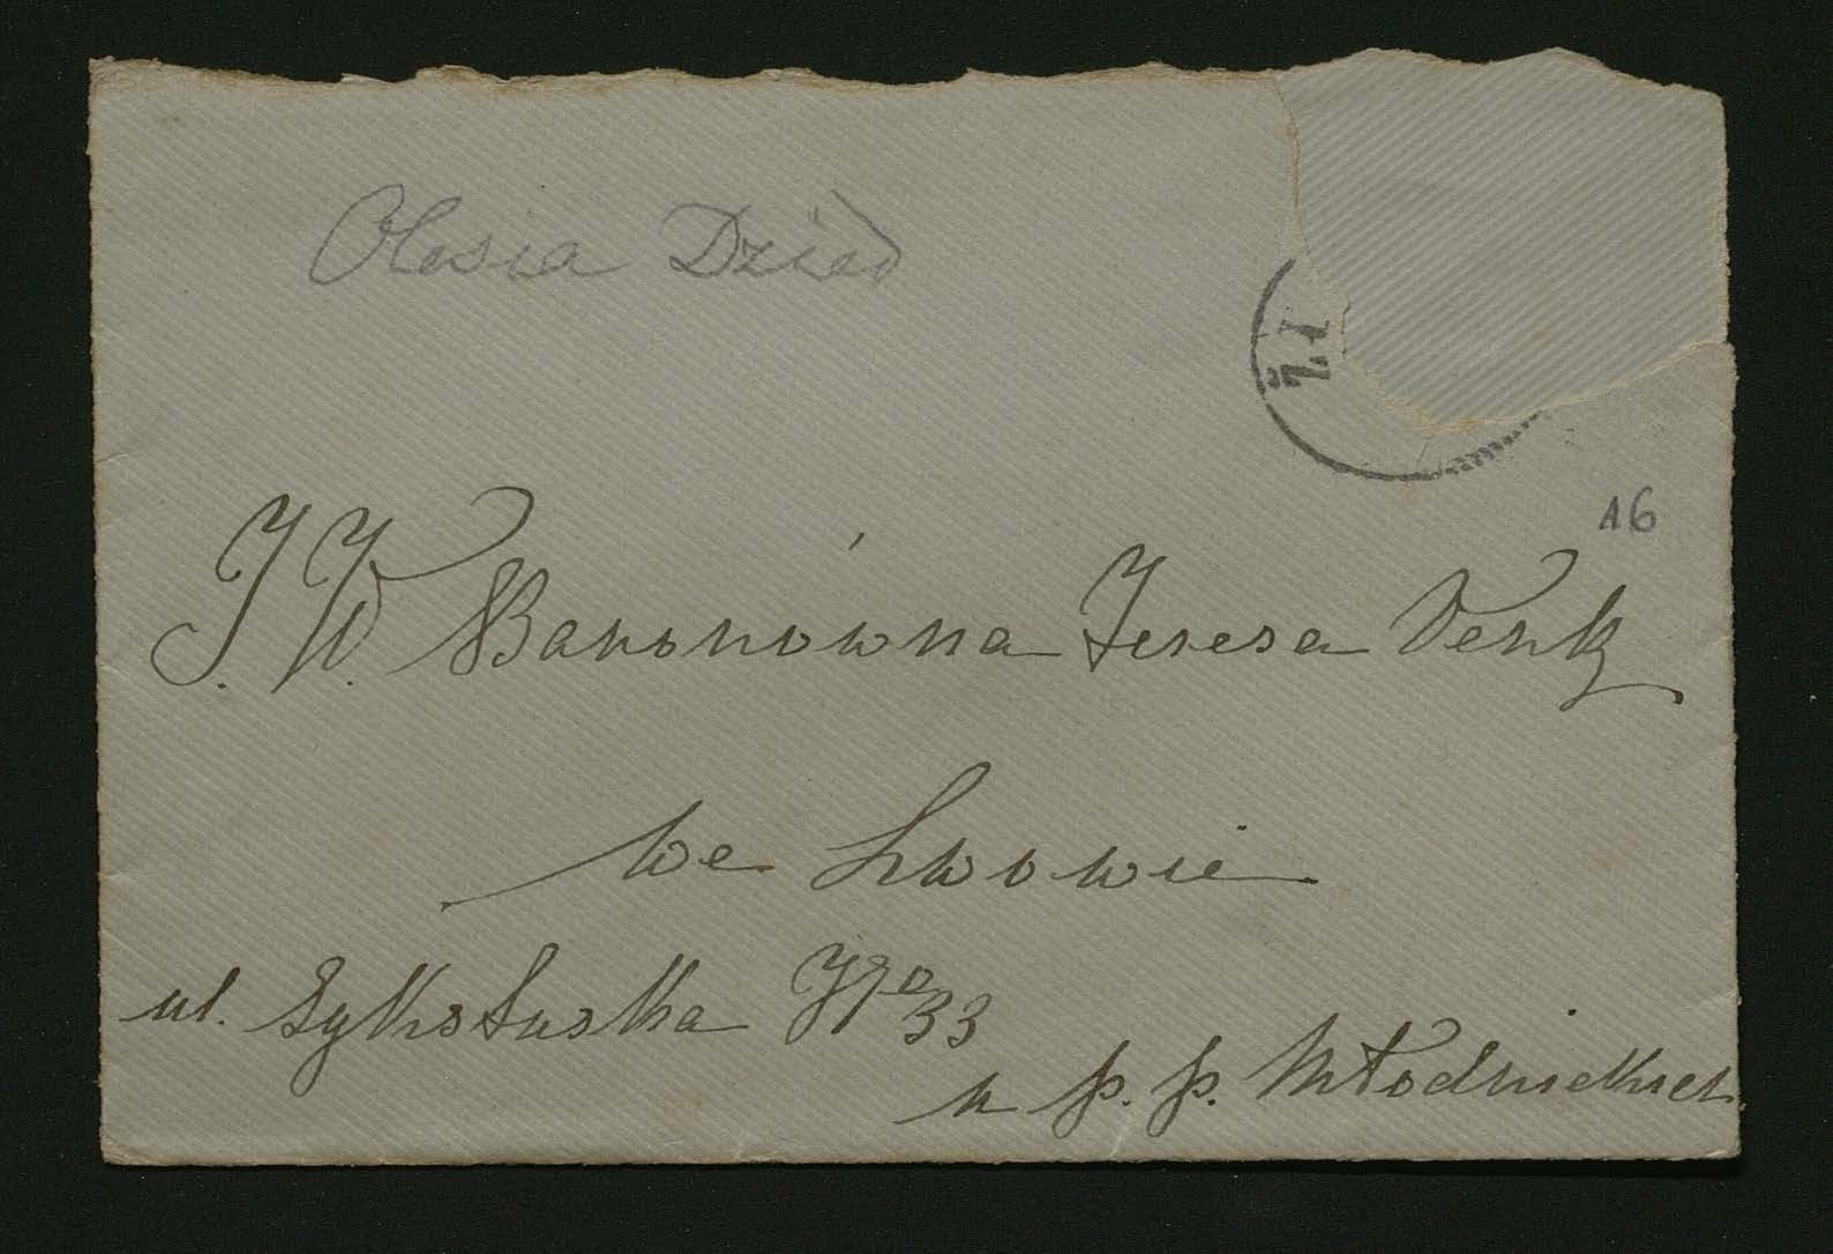 Olesia Dzied
ŻY
16
J. W. Baronówna Teresa Venk
we Lwowie
ul. Sykstuska No 33
u p. p. Młodnickich